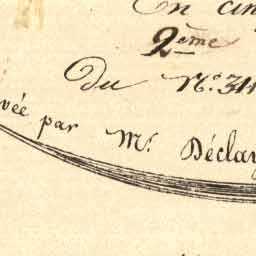 En cin
2ème
Du N°. 311
vée par Mr. Déclay